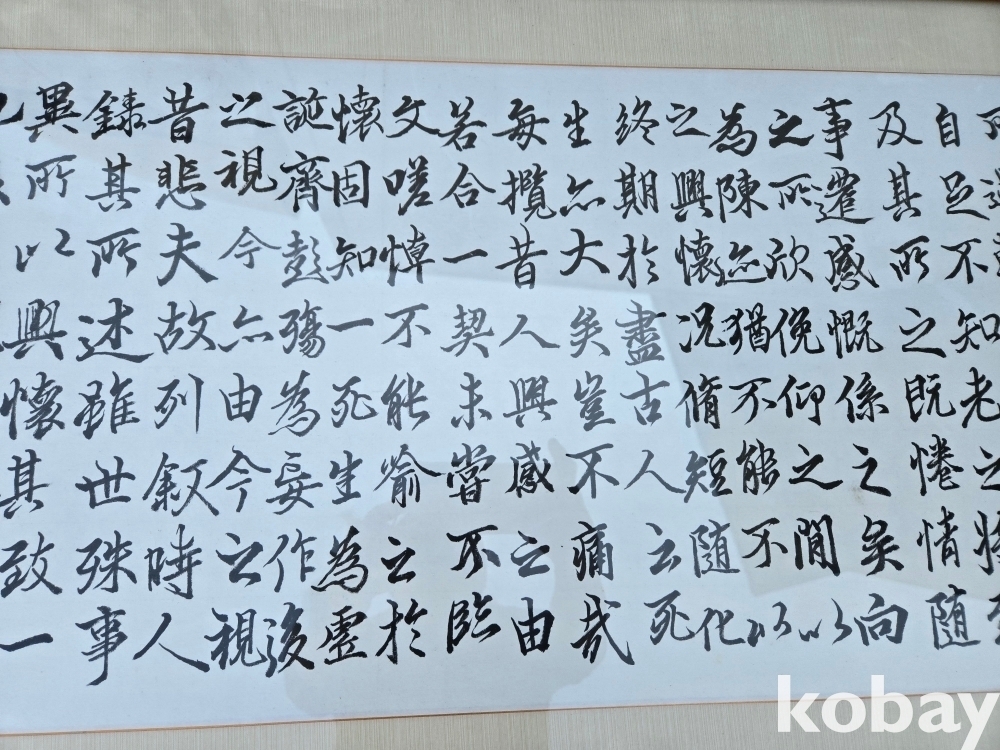 自足不知老之將至
及其所之既惓情隨
事遷感慨係之矣向
之所欣俛仰之閒以
為陳迹猶不能不以
之興懷况脩短隨化
終期於盡古人云死
生亦大矣豈不痛哉
每攬昔人興感之由
若合一契未嘗不臨
文嗟悼不能喻之於
懷固知一死生為虛
誕齊彭殤為妄作後
之視今亦由今之視
昔悲夫故列敘時人
錄其所述雖世殊事
異所以興懷其致一
kobay